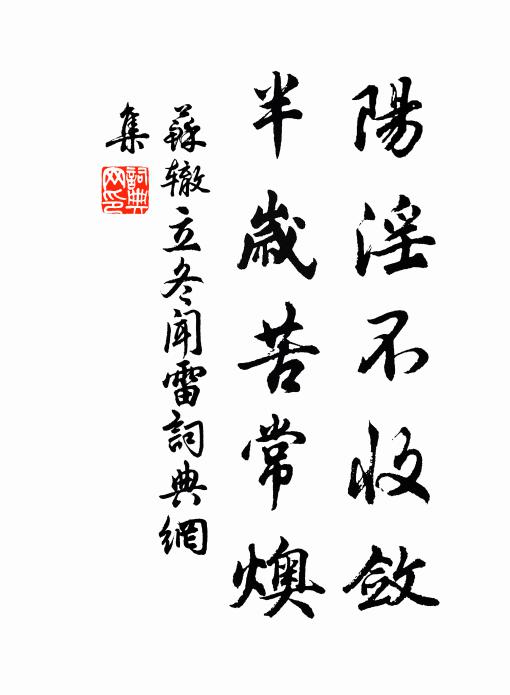 陽淫不收斂
半歲苦常燠
蘇辙立冬聞雷詞典網
集
詞典
网印